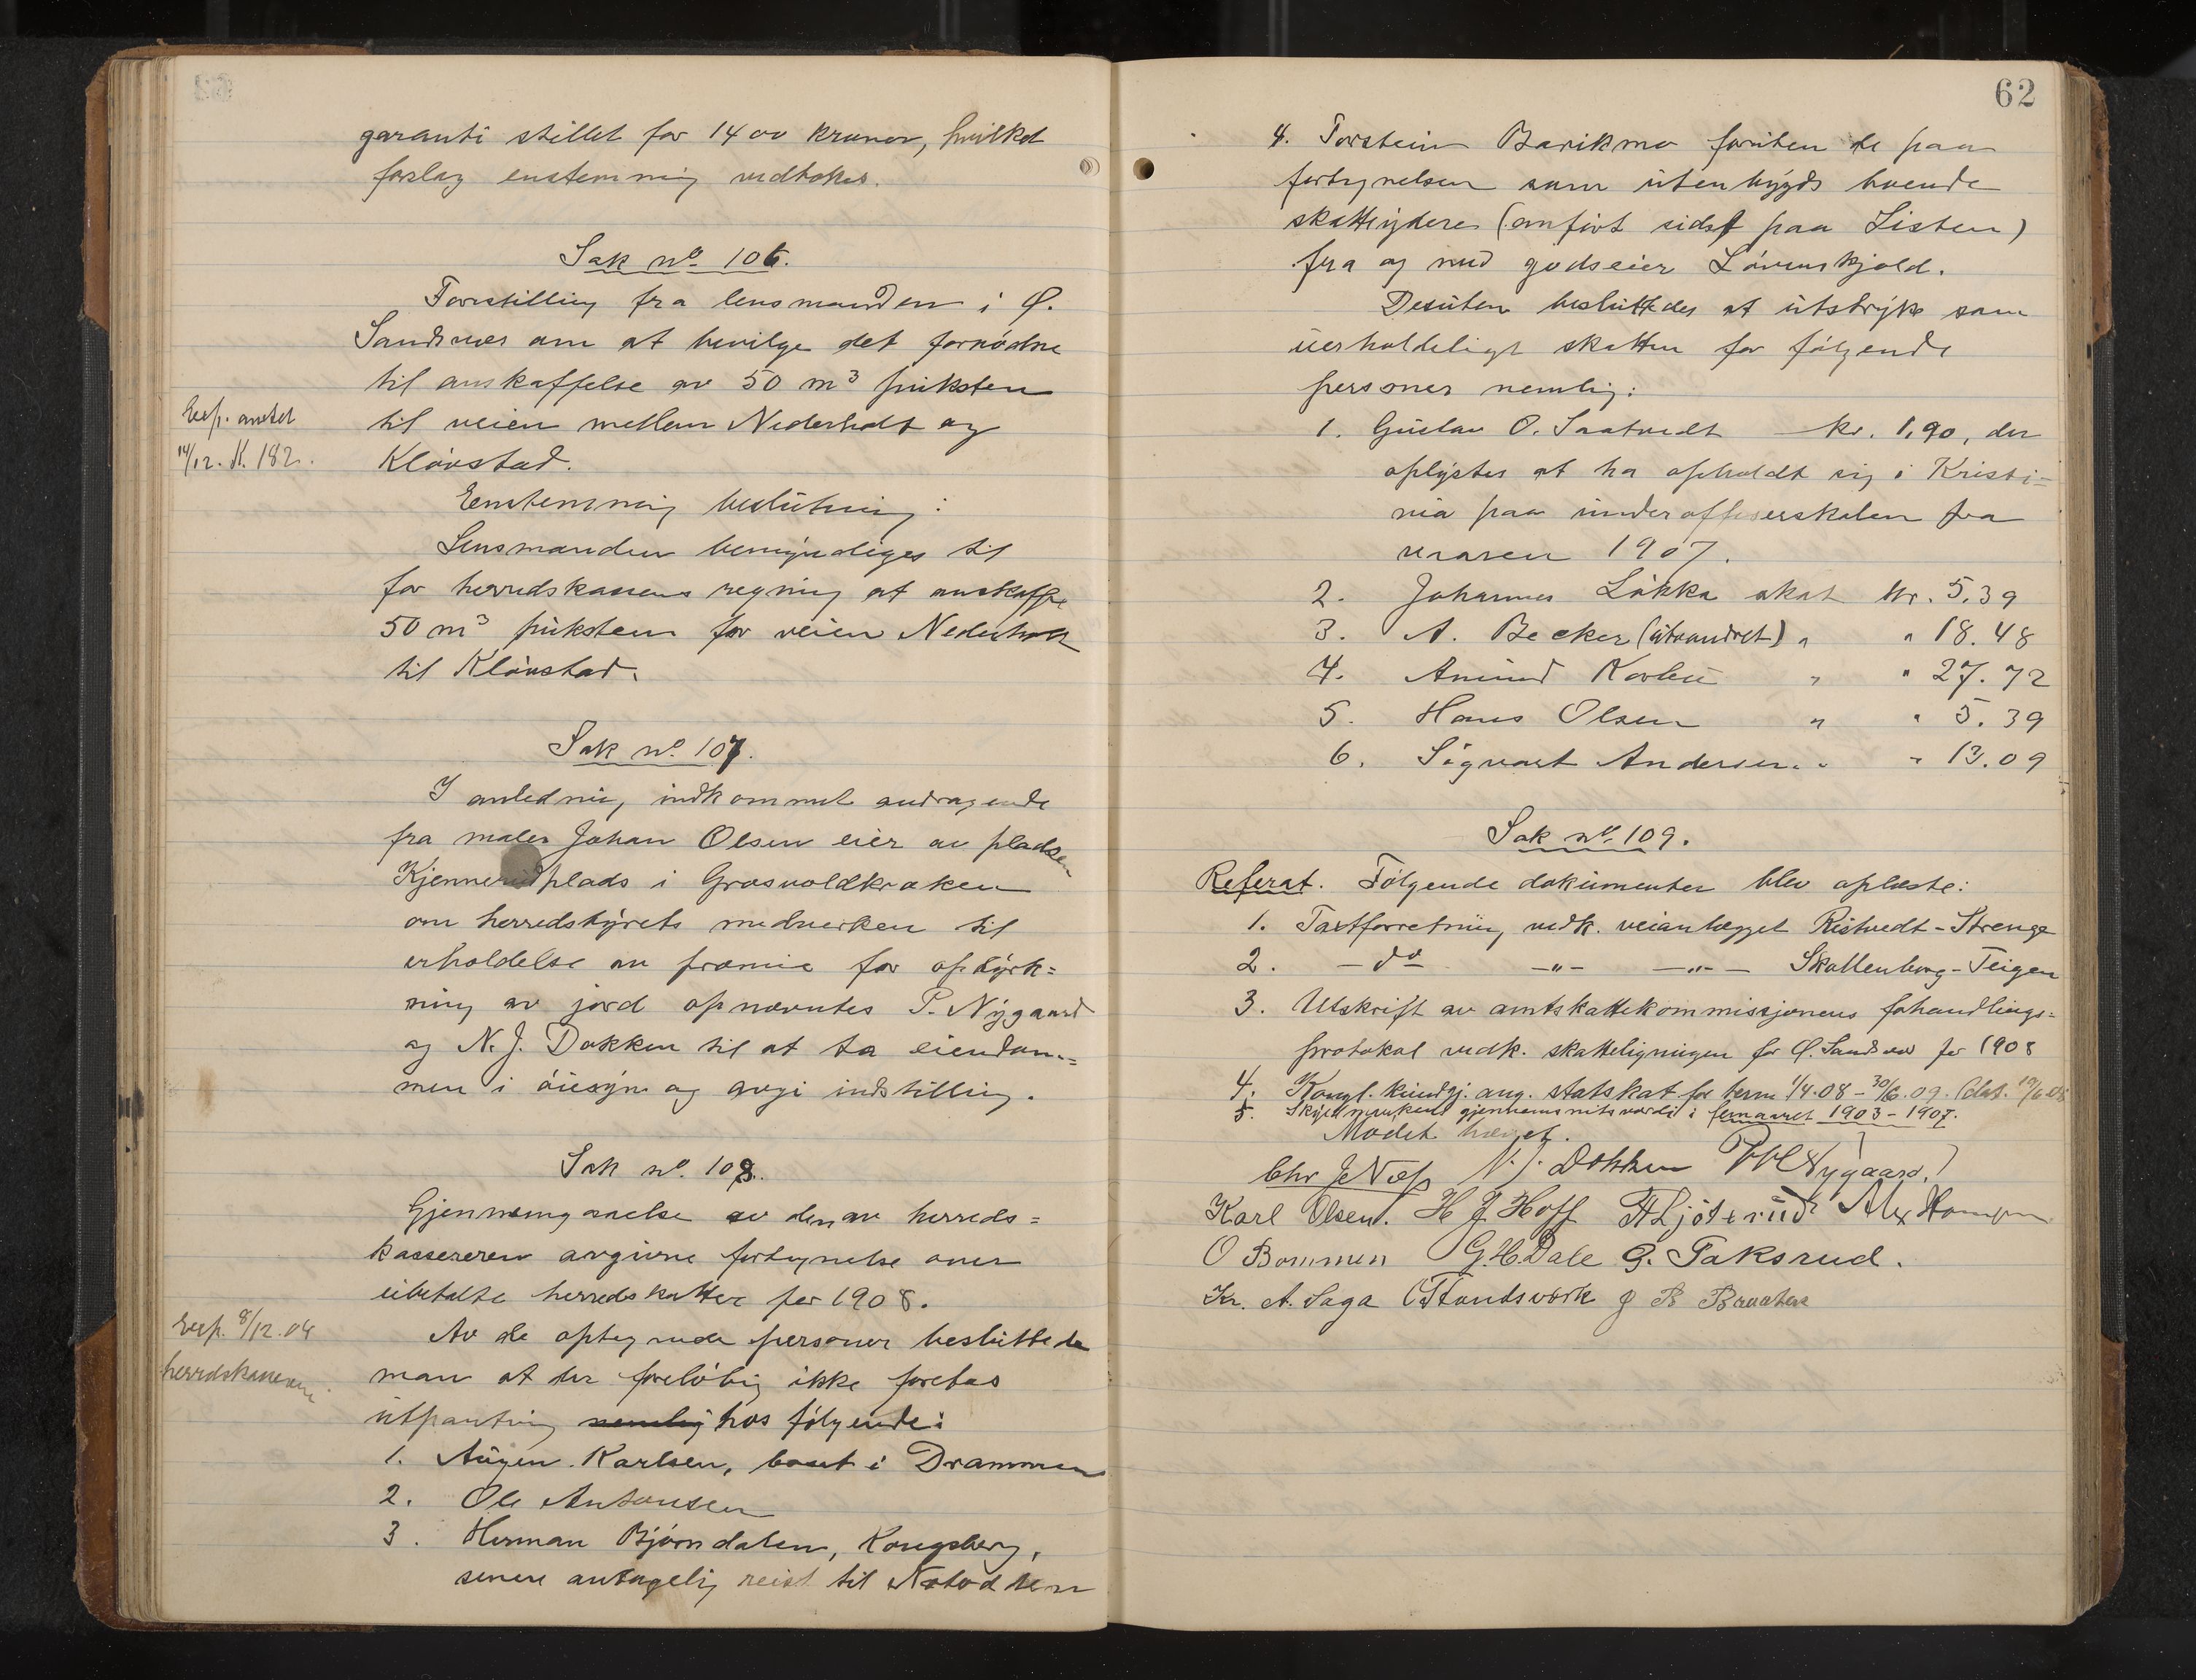 garanti stillet for 1400 kroner, hvilket
forslag enstemmig vedtokes.
Sak nº 106.
Forestilling fra lensmanden i Ø.
Sandsvær om at bevilge det fornødne
til anskaffelse av 50 m³ puksten
til veien mellem Nederholt og
Kløvstad.
Exp. amtet
14/12. K. 182.
Eenstemmig beslutning:
Lensmanden bemyndiges til
for herredskassens regning at anskaffe
50 m³ puksten for veien Nederholt
til Kløvstad.
Sak nº 107.
I anledning indkommet andragende
fra maler Johan Olsen eier av pladsen
Kjennerudplads i Grosvoldkroken
om herredstyrets medvirken til
erholdelse av præmie for opdyrk=
ning av jord opnævntes P. Nygaard
og N. J. Dokken til at ta eiendom=
men i øiesyn og avgi indstilling.
Sak nº 108.
Gjennemgaaelse av den av herreds=
kassereren avgivne fortegnelse over
ubetalte herredsskatter for 1908.
Exp. 8/12.08
herredskassereren
Av de optegnede personer besluttede
man at der foreløbig ikke foretas
utpantning nemlig hos følgende:
1. Augen Karlsen, bosat i Drammen
2. Ole Antonsen
3. Herman Bjørndalen, Kongsberg,
senere antagelig reist til Notodden
62
4. Torstein Barikmo foruten de paa
fortegnelsen som utenbygds boende
skatteydere (anført sidst paa Listen)
fra og med godseier Løvenskjold.
Desuten besluttedes at utstryke som
uerholdeligt skatten for følgende
personer nemlig:
1. Gustav O. Saatvedt kr. 1,90, der
oplystes at ha opholdt sig i Kristi=
nia paa underofficerskolen fra
vaaren 1907.
2. Johannes Løkka skat kr. 5.39
3. A. Becker (utvandret) " " 18.48
4. Amund Korbu " " 27.72
5. Hans Olsen " " 5.39
6. Sigvart Andersen " " 13.09
Sak nº 109.
Referat. Følgende dokumenter blev oplæste:
1. Taxtforretning vedk. veianlægget Ristvedt-Strenge
2. -dº -"- -"- Skollenborg-Teigen
3. Utskrift av amtskattekommissjonens forhandlings=
protokol vedk. skatteligningen for Ø. Sandsvær for 1908
4. Kongl. kundgj. ang. statskat for term 1/4.08 - 30/6.09. (dat. 19/6.08
5. Skyldmarkens gjennemsnitsværdi i femaaret 1903-1907.
Mødet hævet.
Chr J Næss N. J. Dokken P Nygaard
Karl Olsen. H J Hoff A Ljøterud Alex Hansen
O Bommen G. H. Dale G. Taksrud.
Kr. A. Saga Handsværk J B Braaten